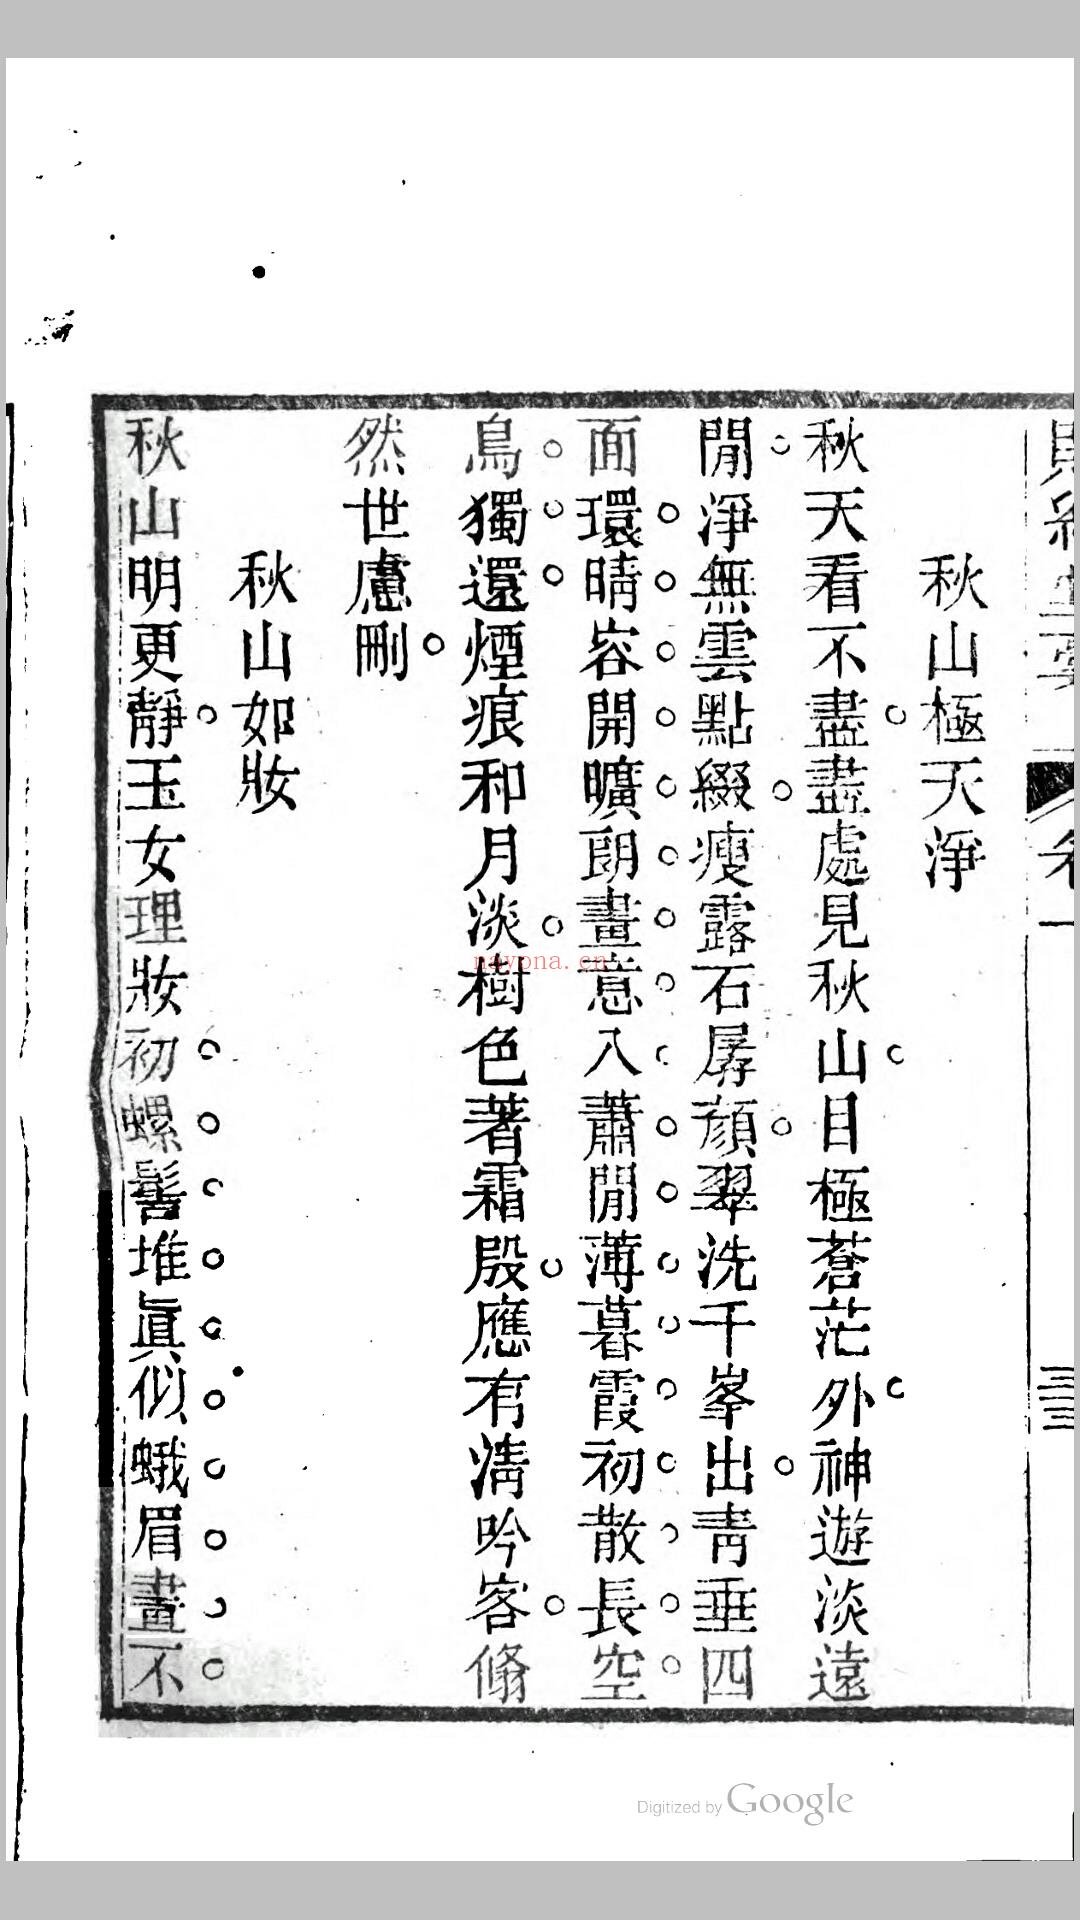 卷一
三三
秋山極天淨
秋天看不盡盡處見秋山目極蒼茫外神遊淡遠
閒淨無雲點綴瘦露石孱顏翠洗千峯出青垂四
面環晴容開曠朗畫意入蕭閒薄暮霞初散長空
鳥獨還煙痕和月淡樹色著霜殷應有淸吟客翛
然世慮刪
秋山如妝
秋山明更靜玉女理妝初螺髻堆眞似蛾眉畫不
nayona.cn
Digitized by Google